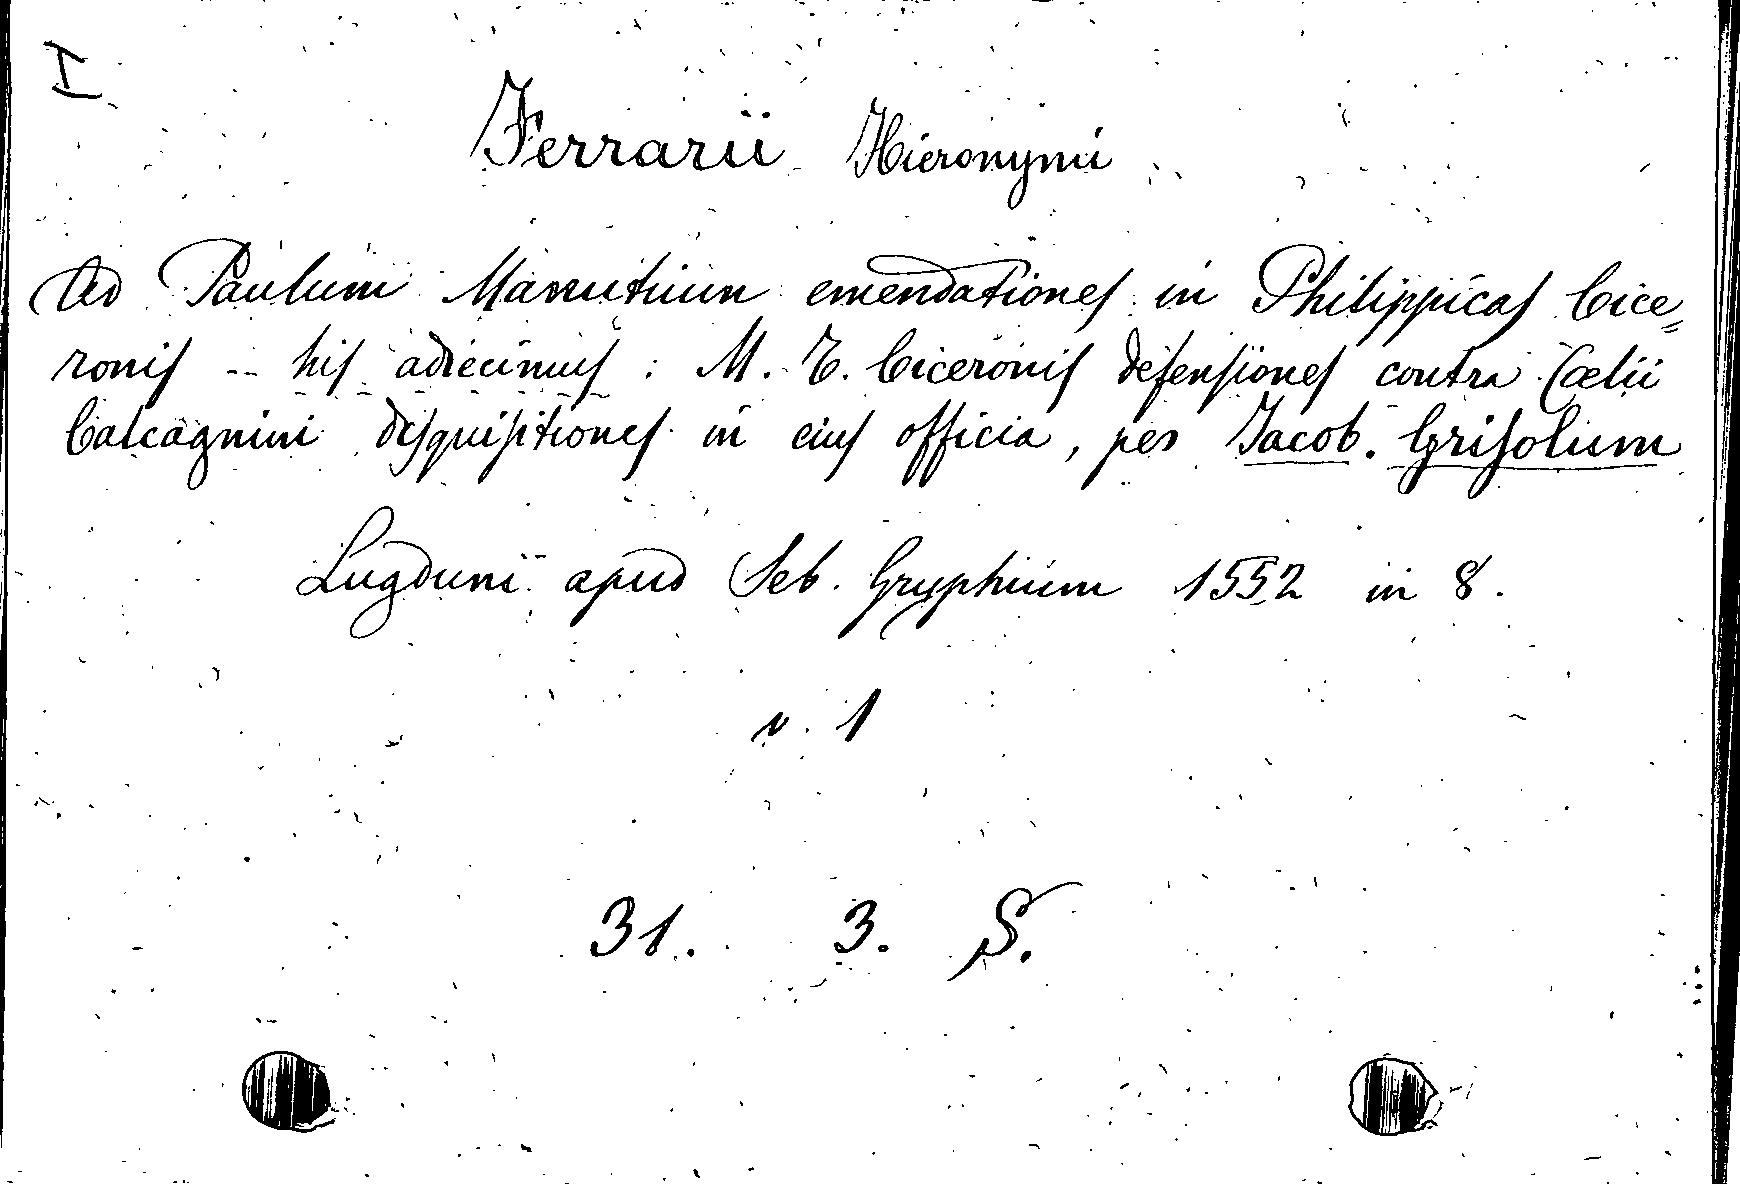 I
Ferrarii Hieronymi
Ad Paulum Manutium emendationes in Philippicas Cice=
ronis -- his adiecimus : M. T. Ciceronis defensiones contra Cœlii
Calcagnini disquisitiones in eius officia, per Jacob. Grifolum
Lugduni apud Seb. Gryphium 1552 in 8.
v. 1
31. 3. S.